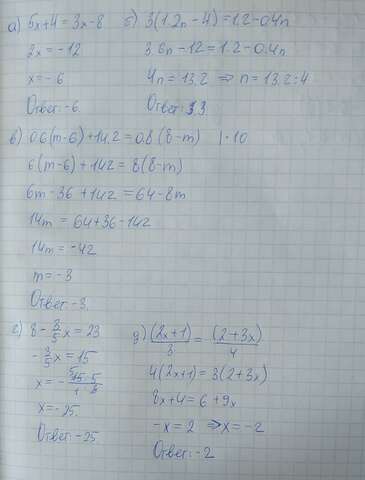 а) 5x+4=3x-8
2x=-12
x=-6
Ответ: -6.
б) 3(1.2n-4)=1.2-0.4n
3.6n-12=1.2-0.4n
4n=13.2 ⇒ n=13.2:4
Ответ: 3.3
в) 0.6(m-6)+14.2=0.8(8-m) |·10
6(m-6)+142=8(8-m)
6m-36+142=64-8m
14m=64+36-142
14m=-42
m=-3
Ответ: -3.
г) 8-3/5x=23
-3/5x=15
x=-
x=-25.
Ответ: -25.
д) (2x+1)/3=(2+3x)/4
4(2x+1)=3(2+3x)
8x+4=6+9x
-x=2 ⇒x=-2
Ответ: -2